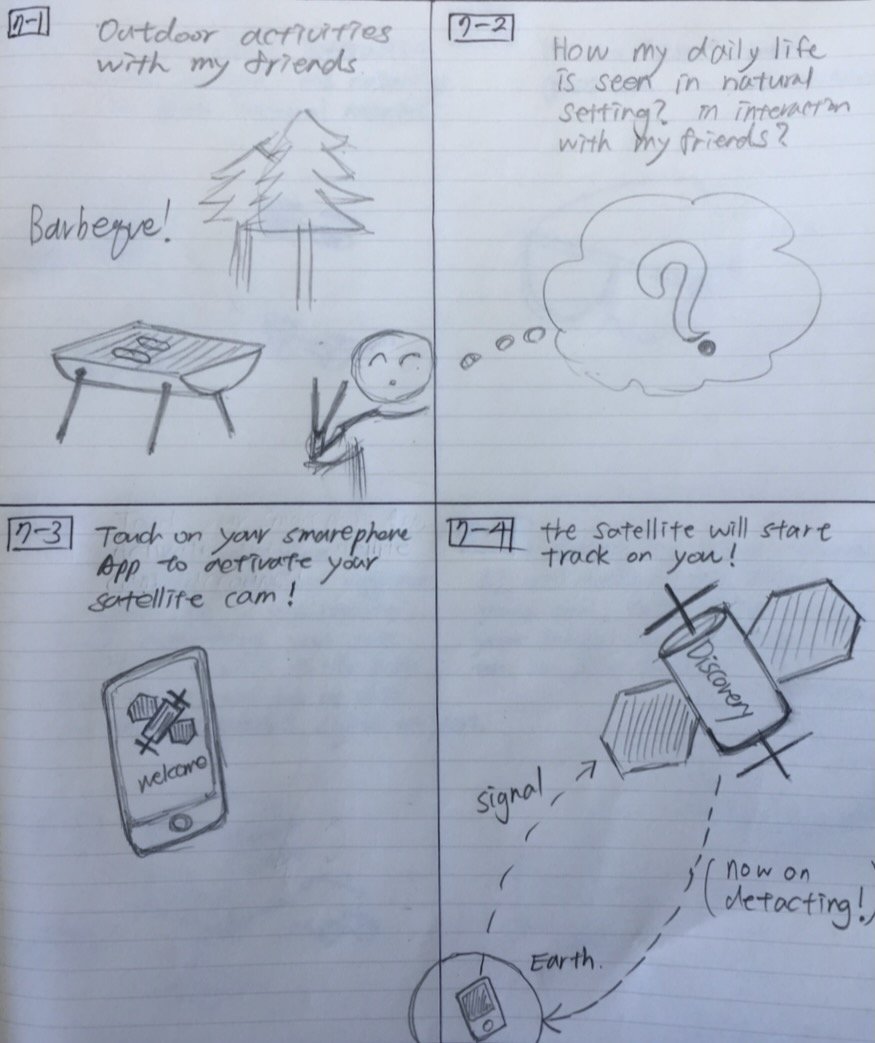 7-1
Outdoor activities
with my friends
Barbeque!
7-2
How my daily life
is seen in natural
setting? in interaction
with my friends?
7-3
Touch on your smarephone
App to activate your
satellite cam!
welcome
7-4
the satellite will start
track on you!
Discovery
signal
(now on
detacting!)
Earth.